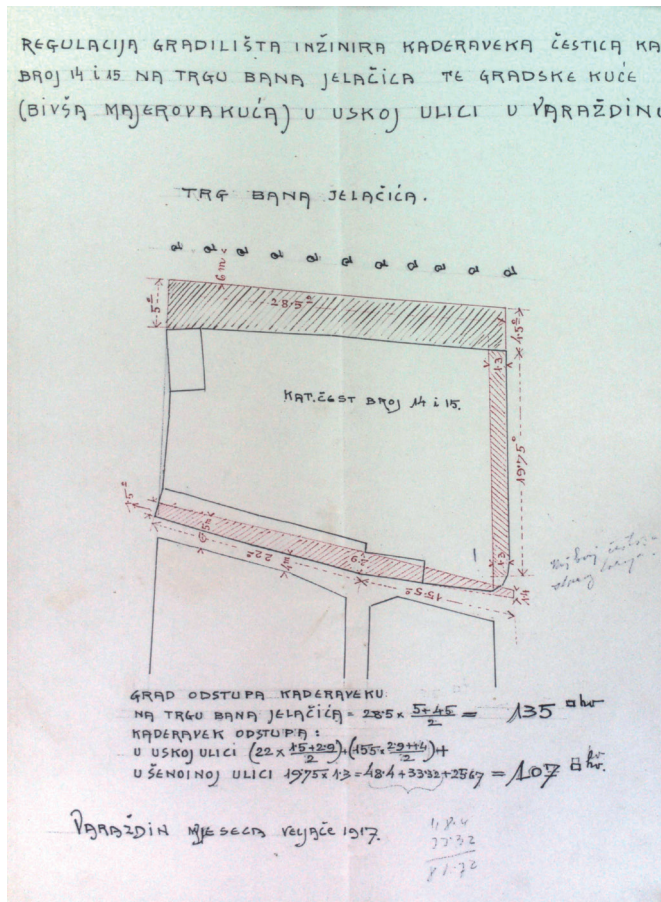 REGULACIJA GRADILIŠTA INŽINIRA KADERAVEKA ČESTICA KA
BROJ 14 i 15 NA TRGU BANA JELAČIĆA TE GRADSKE KUĆE
(BIVŠA MAJEROVA KUĆA) U USKOJ ULICI U VARAŽDINU
TRG BANA JELAČIĆA.
6 m
28·5°
5°
4·5°
1·3
KAT.ČEST BROJ 14 i 15.
19·75°
1·5°
22°
4m
2·9
1·3
15·5°
1·4
GRAD ODSTUPA KADERAVEKU:
NA TRGU BANA JELAČIĆA = 28·5 × (5+4·5)/2 = 135 □ hv
KADERAVEK ODSTUPA:
U USKOJ ULICI (22 × (1·5+2·9)/2)+(15·5 × (2·9+1·4)/2)+
U ŠENOINOJ ULICI 19·75 × 1·3 = 48·4 + 33·32 + 25·67 = 107 □ hv.
VARAŽDIN MJESECA VELJAČE 1917.
48·4
33·32
81·72